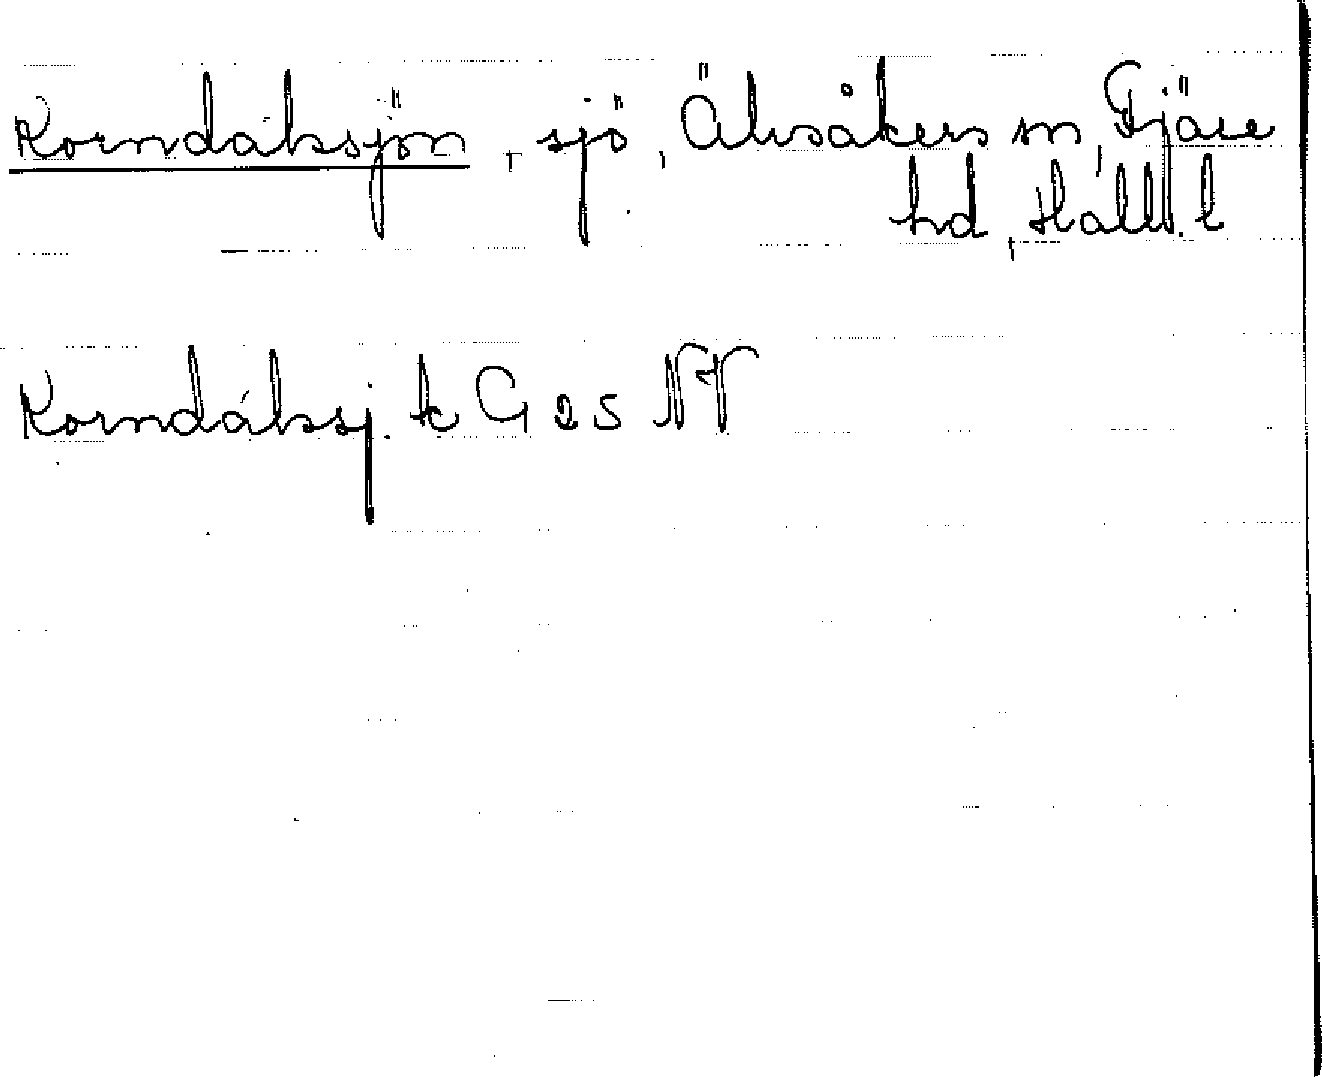 Korndalssjön, sjö, Älvsåkers sn, Fjäre
hd, Hall. l
Korndálssj. k G 25 NV